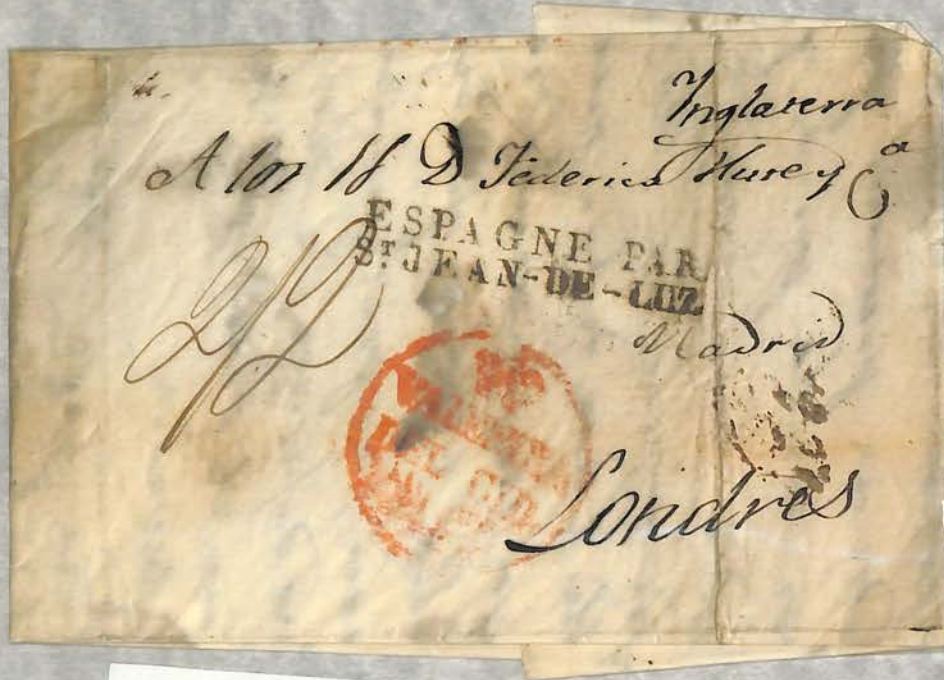 Inglaterra
A los D Federico y Cª
2/2
ESPAGNE PAR
Sᵀ JEAN-DE-LUZ
Madrid
Londres